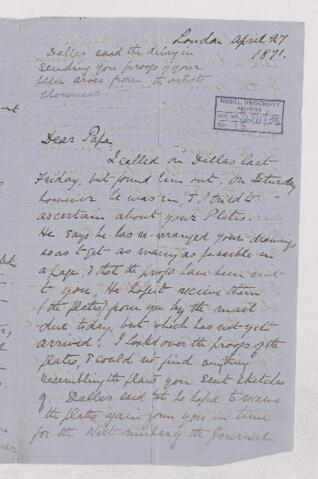 London April 27
1871.
Dallas said the delay in
sending you proofs of your
paper arose from the artists
slowness
McGILL UNIVERSITY
ARCHIVES
ACC. NO.
REF.
Dear Papa,
I called on Dallas last
Friday, but found him out, on Saturday
however he was in, & I tried to
ascertain about your Plates.
He says he has re-arranged your drawings
so as to get as many as possible in
a page, & that the proofs have been sent
to you. He hopes to receive them
(the plates) from you by the mail
due today, but which has not yet
arrived. I looked over the proofs of the
plates, & could not find anything
resembling the plans you sent sketches
of. Dallas said that he hoped to receive
the plates again from you in time
for the Next number of the Journal